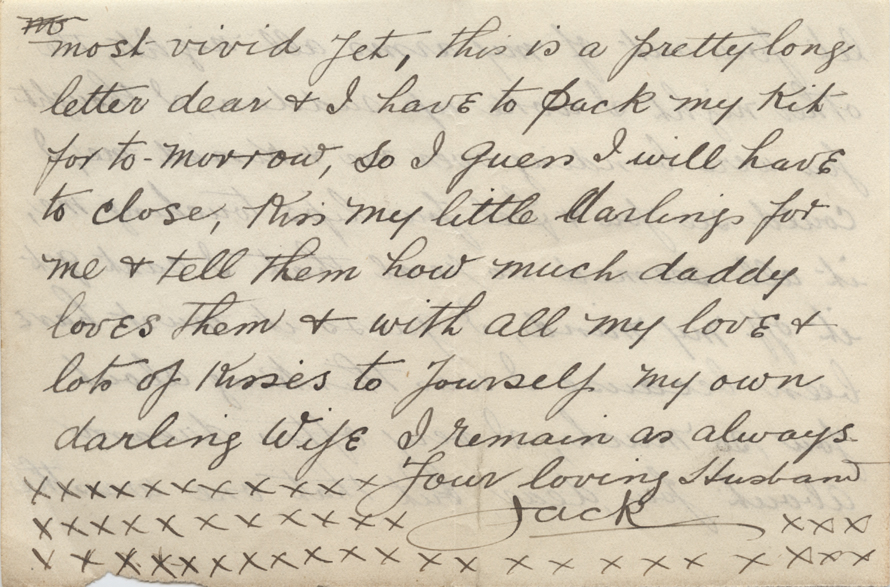 most vivid yet, this is a pretty long
letter dear & I have to pack my Kit
for to-morrow, so I guess I will have
to close, Kiss my little darlings for
me & tell them how much daddy
loves them & with all my love &
lots of Kisses to yourself my own
darling Wife I remain as always
Your loving Husband
x x x x x x x x x x x x x
Jack
x x x x x x x x x x x x x x x x x
x x x x x x x x x x x x x x x x x x x x